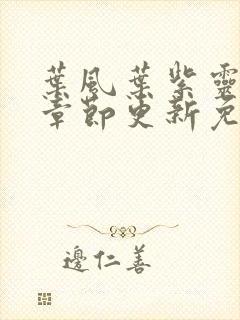 葉風葉紫靈
章節更新免
邊仁善